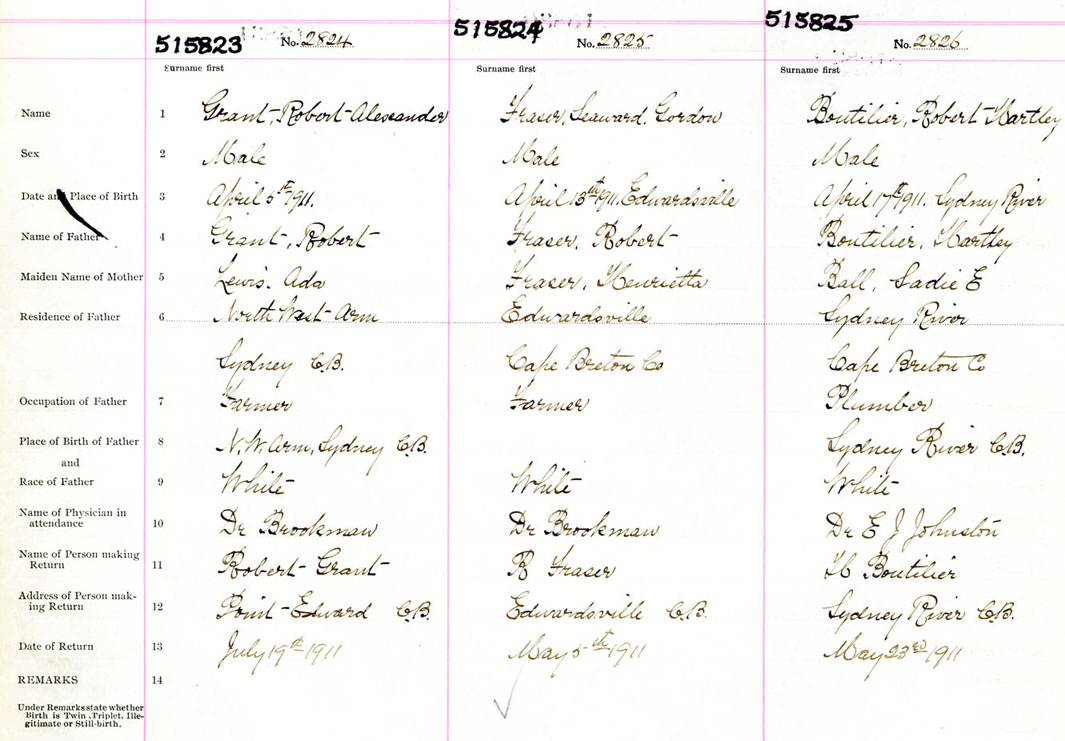 515823 No. 2824 515824 No. 2825 515825 No. 2826
Surname first Surname first Surname first
Name 1 Grant, Robert Alexander Fraser, Seaward, Gordon Boutilier, Robert Hartley
Sex 2 Male Male Male
Date and Place of Birth 3 April 5th 1911. April 13th 1911. Edwardsville April 17th 1911. Sydney River
Name of Father 4 Grant, Robert Fraser, Robert Boutilier, Hartley
Maiden Name of Mother 5 Lewis. Ada Fraser, Henrietta Ball, Sadie E
Residence of Father 6 North West Arm Edwardsville Sydney River
Sydney C.B. Cape Breton Co Cape Breton Co
Occupation of Father 7 Farmer Farmer Plumber
Place of Birth of Father 8 N.W. Arm, Sydney C.B. Sydney River C.B.
and
Race of Father 9 White White White
Name of Physician in
attendance 10 Dr Brookman Dr Brookman Dr E J Johnston
Name of Person making
Return 11 Robert Grant R Fraser H Boutilier
Address of Person mak-
ing Return 12 Point Edward C.B. Edwardsville C.B. Sydney River C.B.
Date of Return 13 July 19th 1911 May 5th 1911 May 23rd 1911
REMARKS 14
Under Remarks state whether
Birth is Twin, Triplet, Ille-
gitimate or Still-birth.